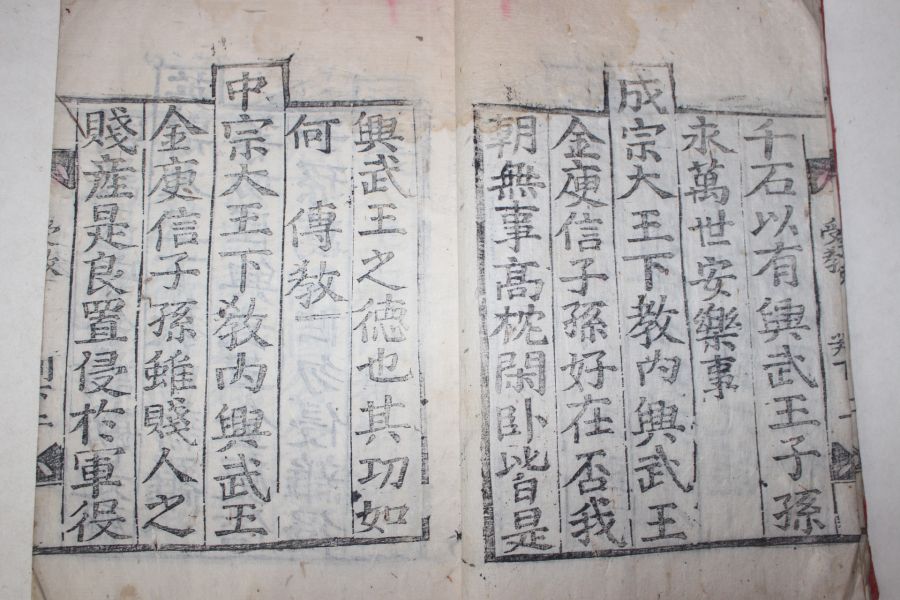 千石以有興武王子孫
永萬世安樂事
成宗大王下教內興武王
金庾信子孫好在否我
朝無事高枕閑卧皆是
興武王之德也其功如
何 傳教
中宗大王下教內興武王
金庾信子孫雖賤人之
賤産是良置侵於軍役
受教